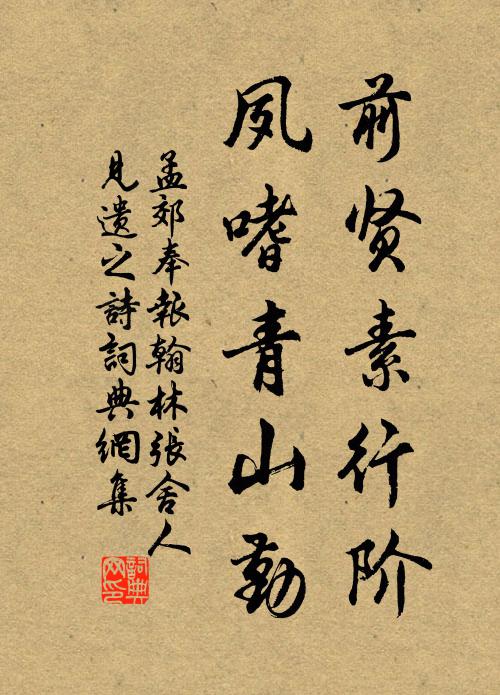 前贤素行阶
夙嗜青山勤
孟郊奉报翰林張舍人
見遗之詩詞典網集
詞典网印